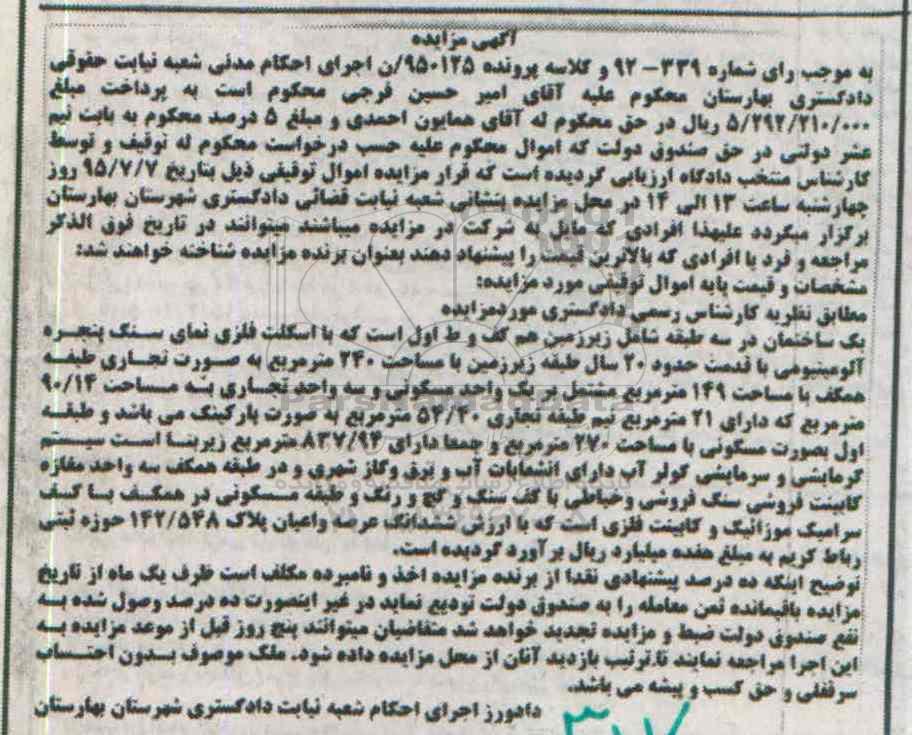 آگهی مزایده
به موجب رای شماره ۳۳۹-۹۲ و کلاسه پرونده ۹۵۰۱۲۵/ن اجرای احکام مدنی شعبه نیابت حقوقی
دادگستری بهارستان محکوم علیه آقای امیر حسین فرجی محکوم است به پرداخت مبلغ
۵/۲۹۲/۲۱۰/۰۰۰ ریال در حق محکوم له آقای همایون احمدی و مبلغ ۵ درصد محکوم به بابت نیم
عشر دولتی در حق صندوق دولت که اموال محکوم علیه حسب درخواست محکوم له توقیف و توسط
کارشناس منتخب دادگاه ارزیابی گردیده است که قرار مزایده اموال توقیفی ذیل بتاریخ ۹۵/۷/۷ روز
چهارشنبه ساعت ۱۳ الی ۱۴ در محل مزایده بنشانی شعبه نیابت قضائی دادگستری شهرستان بهارستان
برگزار میگردد علیهذا افرادی که مایل به شرکت در مزایده میباشند میتوانند در تاریخ فوق الذکر
مراجعه و فرد یا افرادی که بالاترین قیمت را پیشنهاد دهند بعنوان برنده مزایده شناخته خواهند شد:
مشخصات و قیمت پایه اموال توقیفی مورد مزایده:
مطابق نظریه کارشناس رسمی دادگستری موردمزایده
یک ساختمان در سه طبقه شامل زیرزمین هم کف و ط اول است که با اسکلت فلزی نمای سنگ پنجره
آلومینیومی با قدمت حدود ۲۰ سال طبقه زیرزمین با مساحت ۲۴۰ مترمربع به صورت تجاری طبقه
همکف با مساحت ۱۴۹ مترمربع مشتمل بر یک واحد مسکونی و سه واحد تجاری به مساحت ۹۰/۱۴
مترمربع که دارای ۲۱ مترمربع نیم طبقه تجاری ۵۴/۴۰ مترمربع به صورت پارکینگ می باشد و طبقه
اول بصورت مسکونی با مساحت ۲۷۰ مترمربع و جمعا دارای ۸۳۷/۹۴ مترمربع زیربنا است سیستم
گرمایشی و سرمایشی کولر آب دارای انشعابات آب و برق وگاز شهری و در طبقه همکف سه واحد مغازه
کابینت فروشی سنگ فروشی وخیاطی با کف سنگ و گچ و رنگ و طبقه مسکونی در همکف با کف
سرامیک موزائیک و کابینت فلزی است که با ارزش ششدانگ عرصه واعیان پلاک ۱۴۲/۵۴۸ حوزه ثبتی
رباط کریم به مبلغ هفده میلیارد ریال برآورد گردیده است.
توضیح اینکه ده درصد پیشنهادی نقدا از برنده مزایده اخذ و نامبرده مکلف است ظرف یک ماه از تاریخ
مزایده باقیمانده ثمن معامله را به صندوق دولت تودیع نماید در غیر اینصورت ده درصد وصول شده به
نفع صندوق دولت ضبط و مزایده تجدید خواهد شد متقاضیان میتوانند پنج روز قبل از موعد مزایده به
این اجرا مراجعه نمایند تا ترتیب بازدید آنان از محل مزایده داده شود. ملک موصوف بدون احتساب
سرقفلی و حق کسب و پیشه می باشد.
دادورز اجرای احکام شعبه نیابت دادگستری شهرستان بهارستان